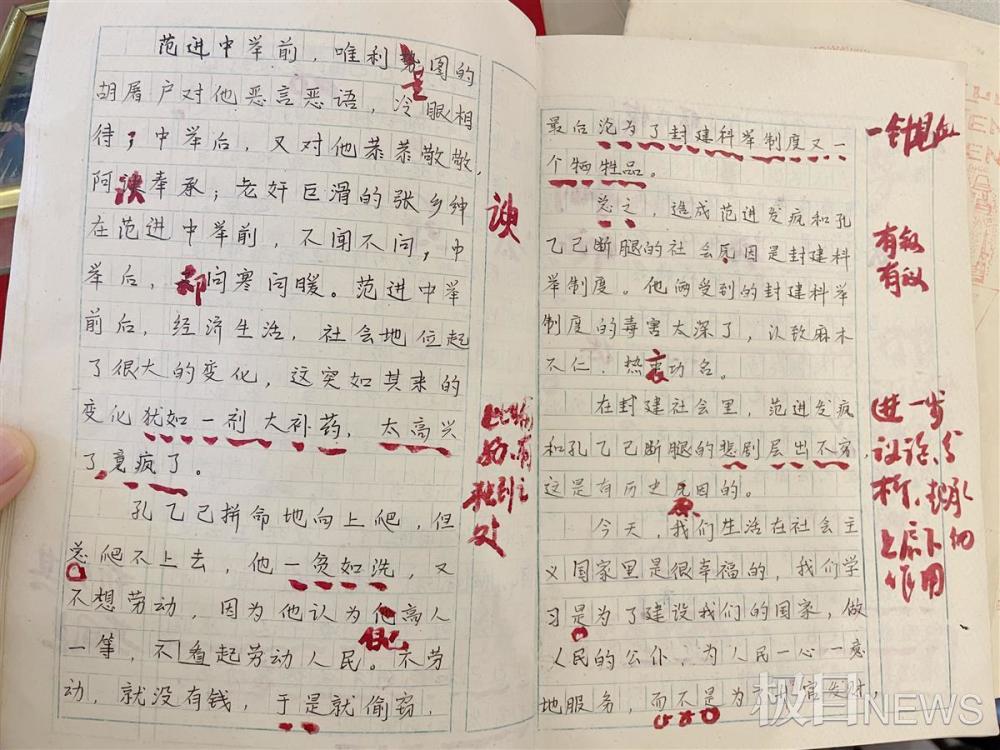 范进中举前，唯利是图的
胡屠户对他恶言恶语，冷眼相
待；中举后，又对他恭恭敬敬，
阿谀奉承；老奸巨滑的张乡绅
在范进中举前，不闻不问，中
举后，却问寒问暖。范进中举
前后，经济生活，社会地位起
了很大的变化，这突如其来的
变化犹如一剂大补药，太高兴
了竟疯了。
孔乙己拼命地向上爬，但
总爬不上去，他一贫如洗，又
不想劳动，因为他认为他高人
一等，不看起劳动人民。不劳
动，就没有钱，于是就偷窃，
谀
比喻
好，有
独到之
处
最后沦为了封建科举制度又一
个牺牲品。
总之，造成范进发疯和孔
乙己断腿的社会原因是封建科
举制度。他俩受到的封建科举
制度的毒害太深了，以致麻木
不仁，热衷功名。
在封建社会里，范进发疯
和孔乙己断腿的悲剧层出不穷，
这是有历史原因的。
今天，我们生活在社会主
义国家里是很幸福的，我们学
习是为了建设我们的国家，做
人民的公仆，为人民一心一意
地服务，而不是为
一针见血
有叙
有议
进一步
议论分
析，起承
上启下的
作用
极目NEWS